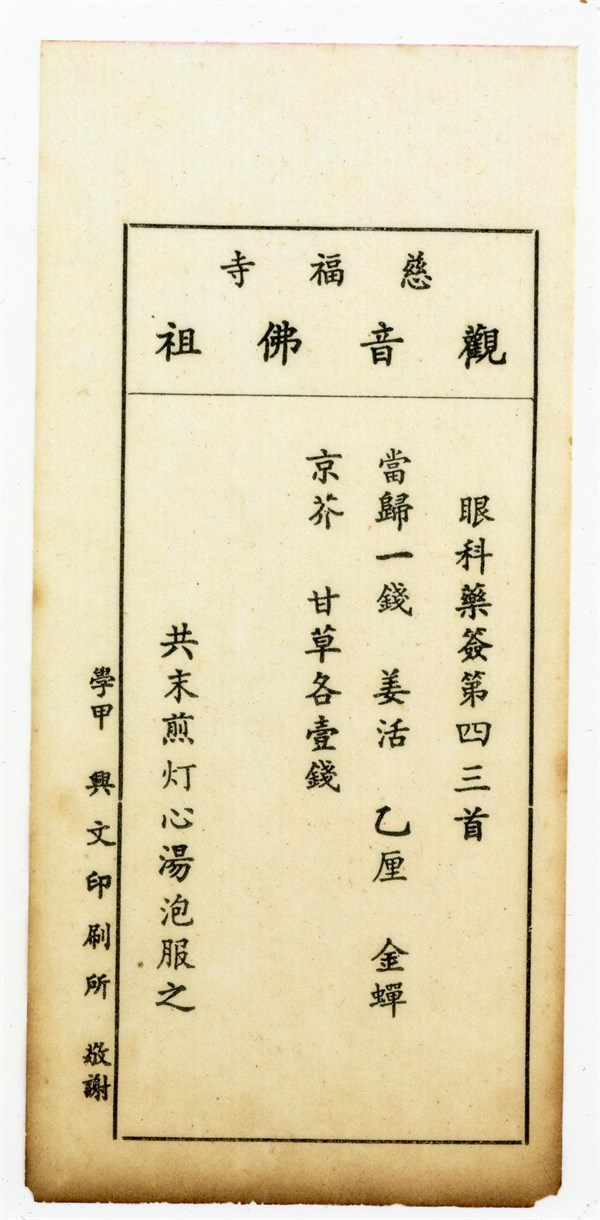 慈福寺
觀音佛祖
眼科藥簽第四三首
當歸一錢 姜活 乙厘 金蟬
京芥 甘草各壹錢
共末煎灯心湯泡服之
學甲 興文印刷所 敬謝